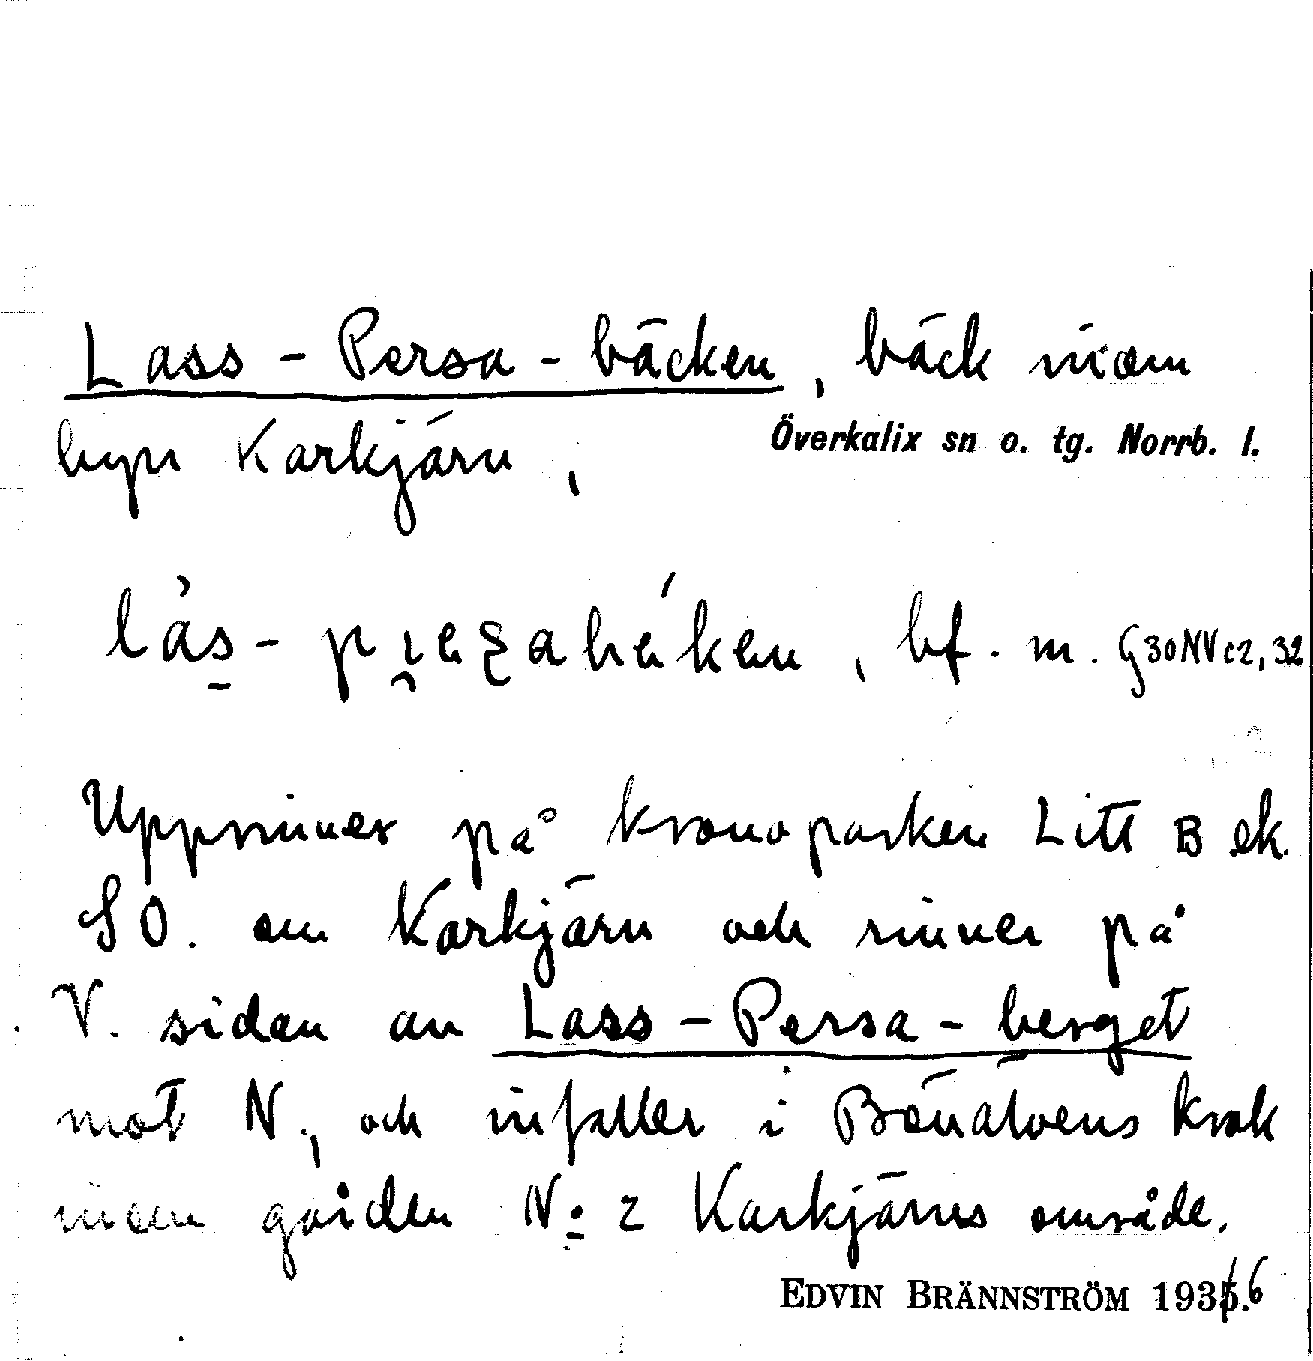 Lass-Persa-bäcken, bäck inom
byn Karkjärn,
Överkalix sn o. tg. Norrb. l.
bf. m. G30NVc2,32
Upprinner på kronoparken Litt B ek.
SO. om Karkjärn och rinner på
V. sidan av Lass-Persa-berget
mot N., och infaller i Bönälvens krok
inom gården No 2 Karkjärns område.
EDVIN BRÄNNSTRÖM 1935.6